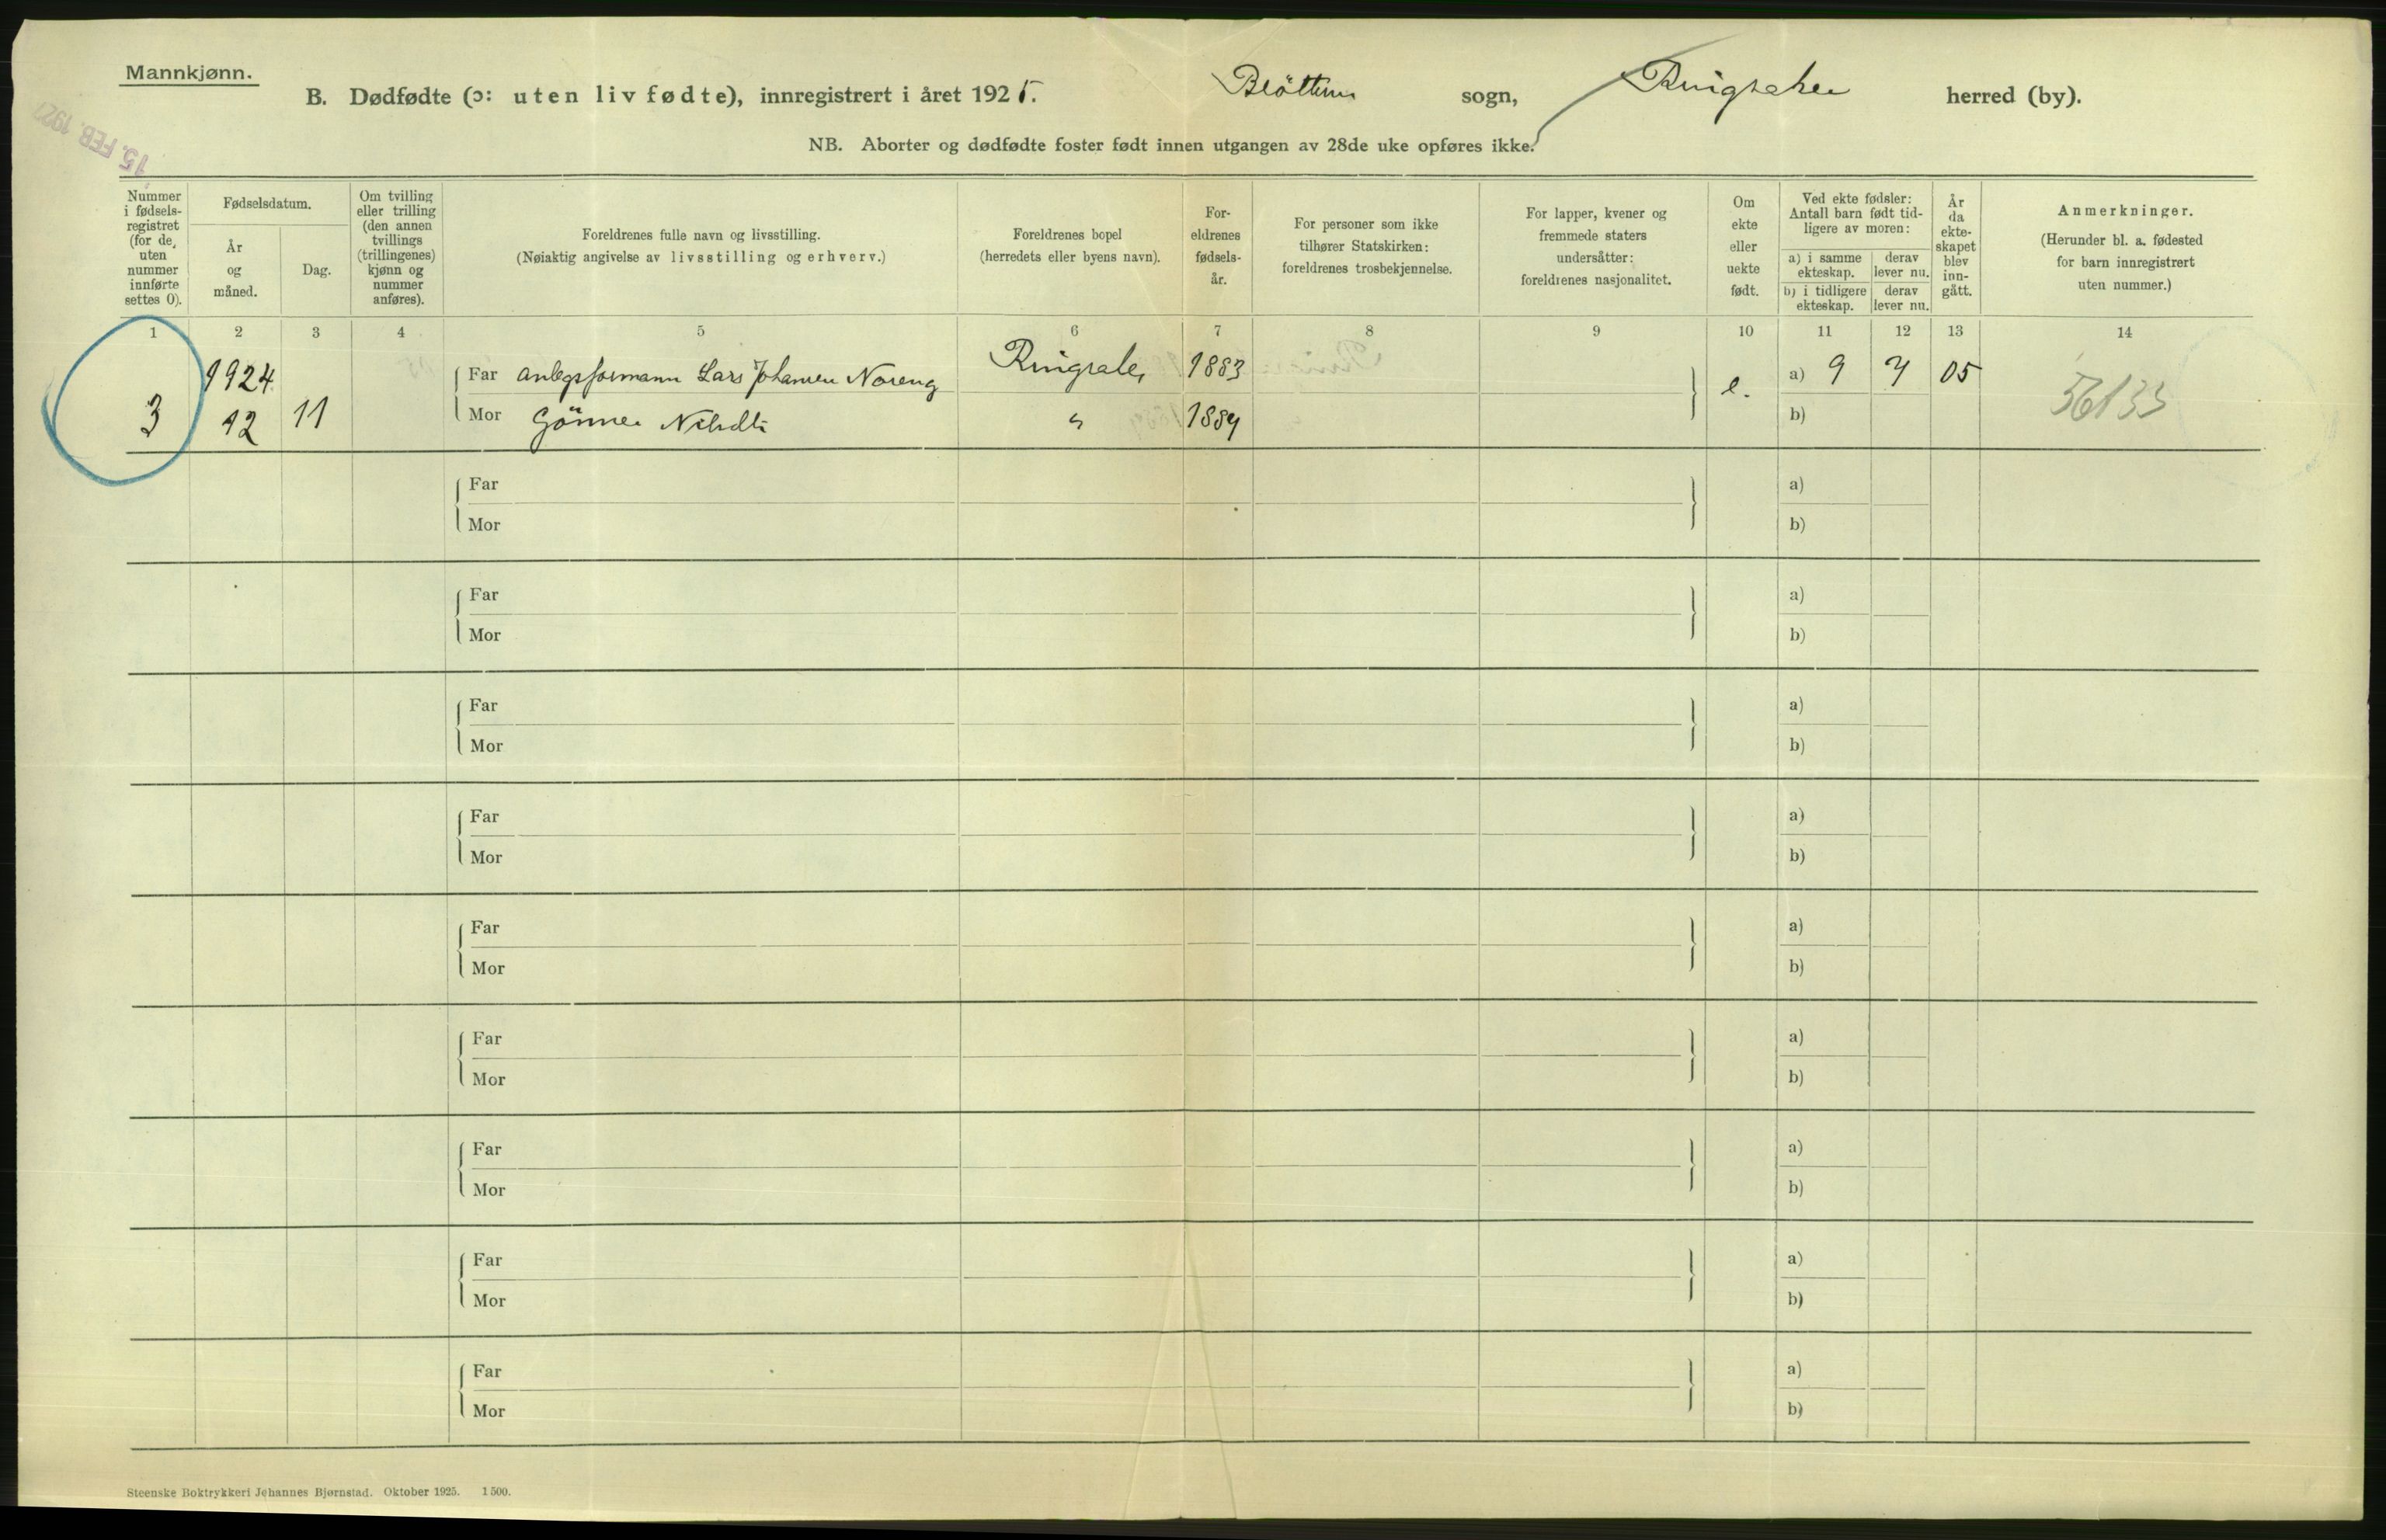 Mannkjønn.
B. Dødfødte (ɔ: uten liv fødte), innregistrert i året 1925. Bröttum sogn, Ringsaker herred (by).
15. FEB. 192
NB. Aborter og dødfødte foster født innen utgangen av 28de uke opføres ikke.
Nummer i fødsels-registret (for de, uten nummer innførte settes 0).
Fødselsdatum.
År og måned.
Dag.
Om tvilling eller trilling (den annen tvillings (trillingenes) kjønn og nummer anføres).
Foreldrenes fulle navn og livsstilling.
(Nøiaktig angivelse av livsstilling og erhverv.)
Foreldrenes bopel
(herredets eller byens navn).
For-eldrenes fødsels-år.
For personer som ikke tilhører Statskirken: foreldrenes trosbekjennelse.
For lapper, kvener og fremmede staters undersåtter: foreldrenes nasjonalitet.
Om ekte eller uekte født.
Ved ekte fødsler: Antall barn født tid-ligere av moren:
a) i samme ekteskap.
derav lever nu.
b) i tidligere ekteskap.
derav lever nu.
År da ekte-skapet blev inn-gått.
Anmerkninger.
(Herunder bl. a. fødested for barn innregistrert uten nummer.)
1 2 3 4 5 6 7 8 9 10 11 12 13 14
1924
Far anlegsformann Lars Johansen Noreng Ringsaker 1883
a) 9 7 05
3 12 11
e.
56133
Mor " 1884
b)
Far a)
Mor b)
Far a)
Mor b)
Far a)
Mor b)
Far a)
Mor b)
Far a)
Mor b)
Far a)
Mor b)
Far a)
Mor b)
Far a)
Mor b)
Far a)
Mor b)
Steenske Boktrykkeri Johannes Bjørnstad. Oktober 1925. 1500.